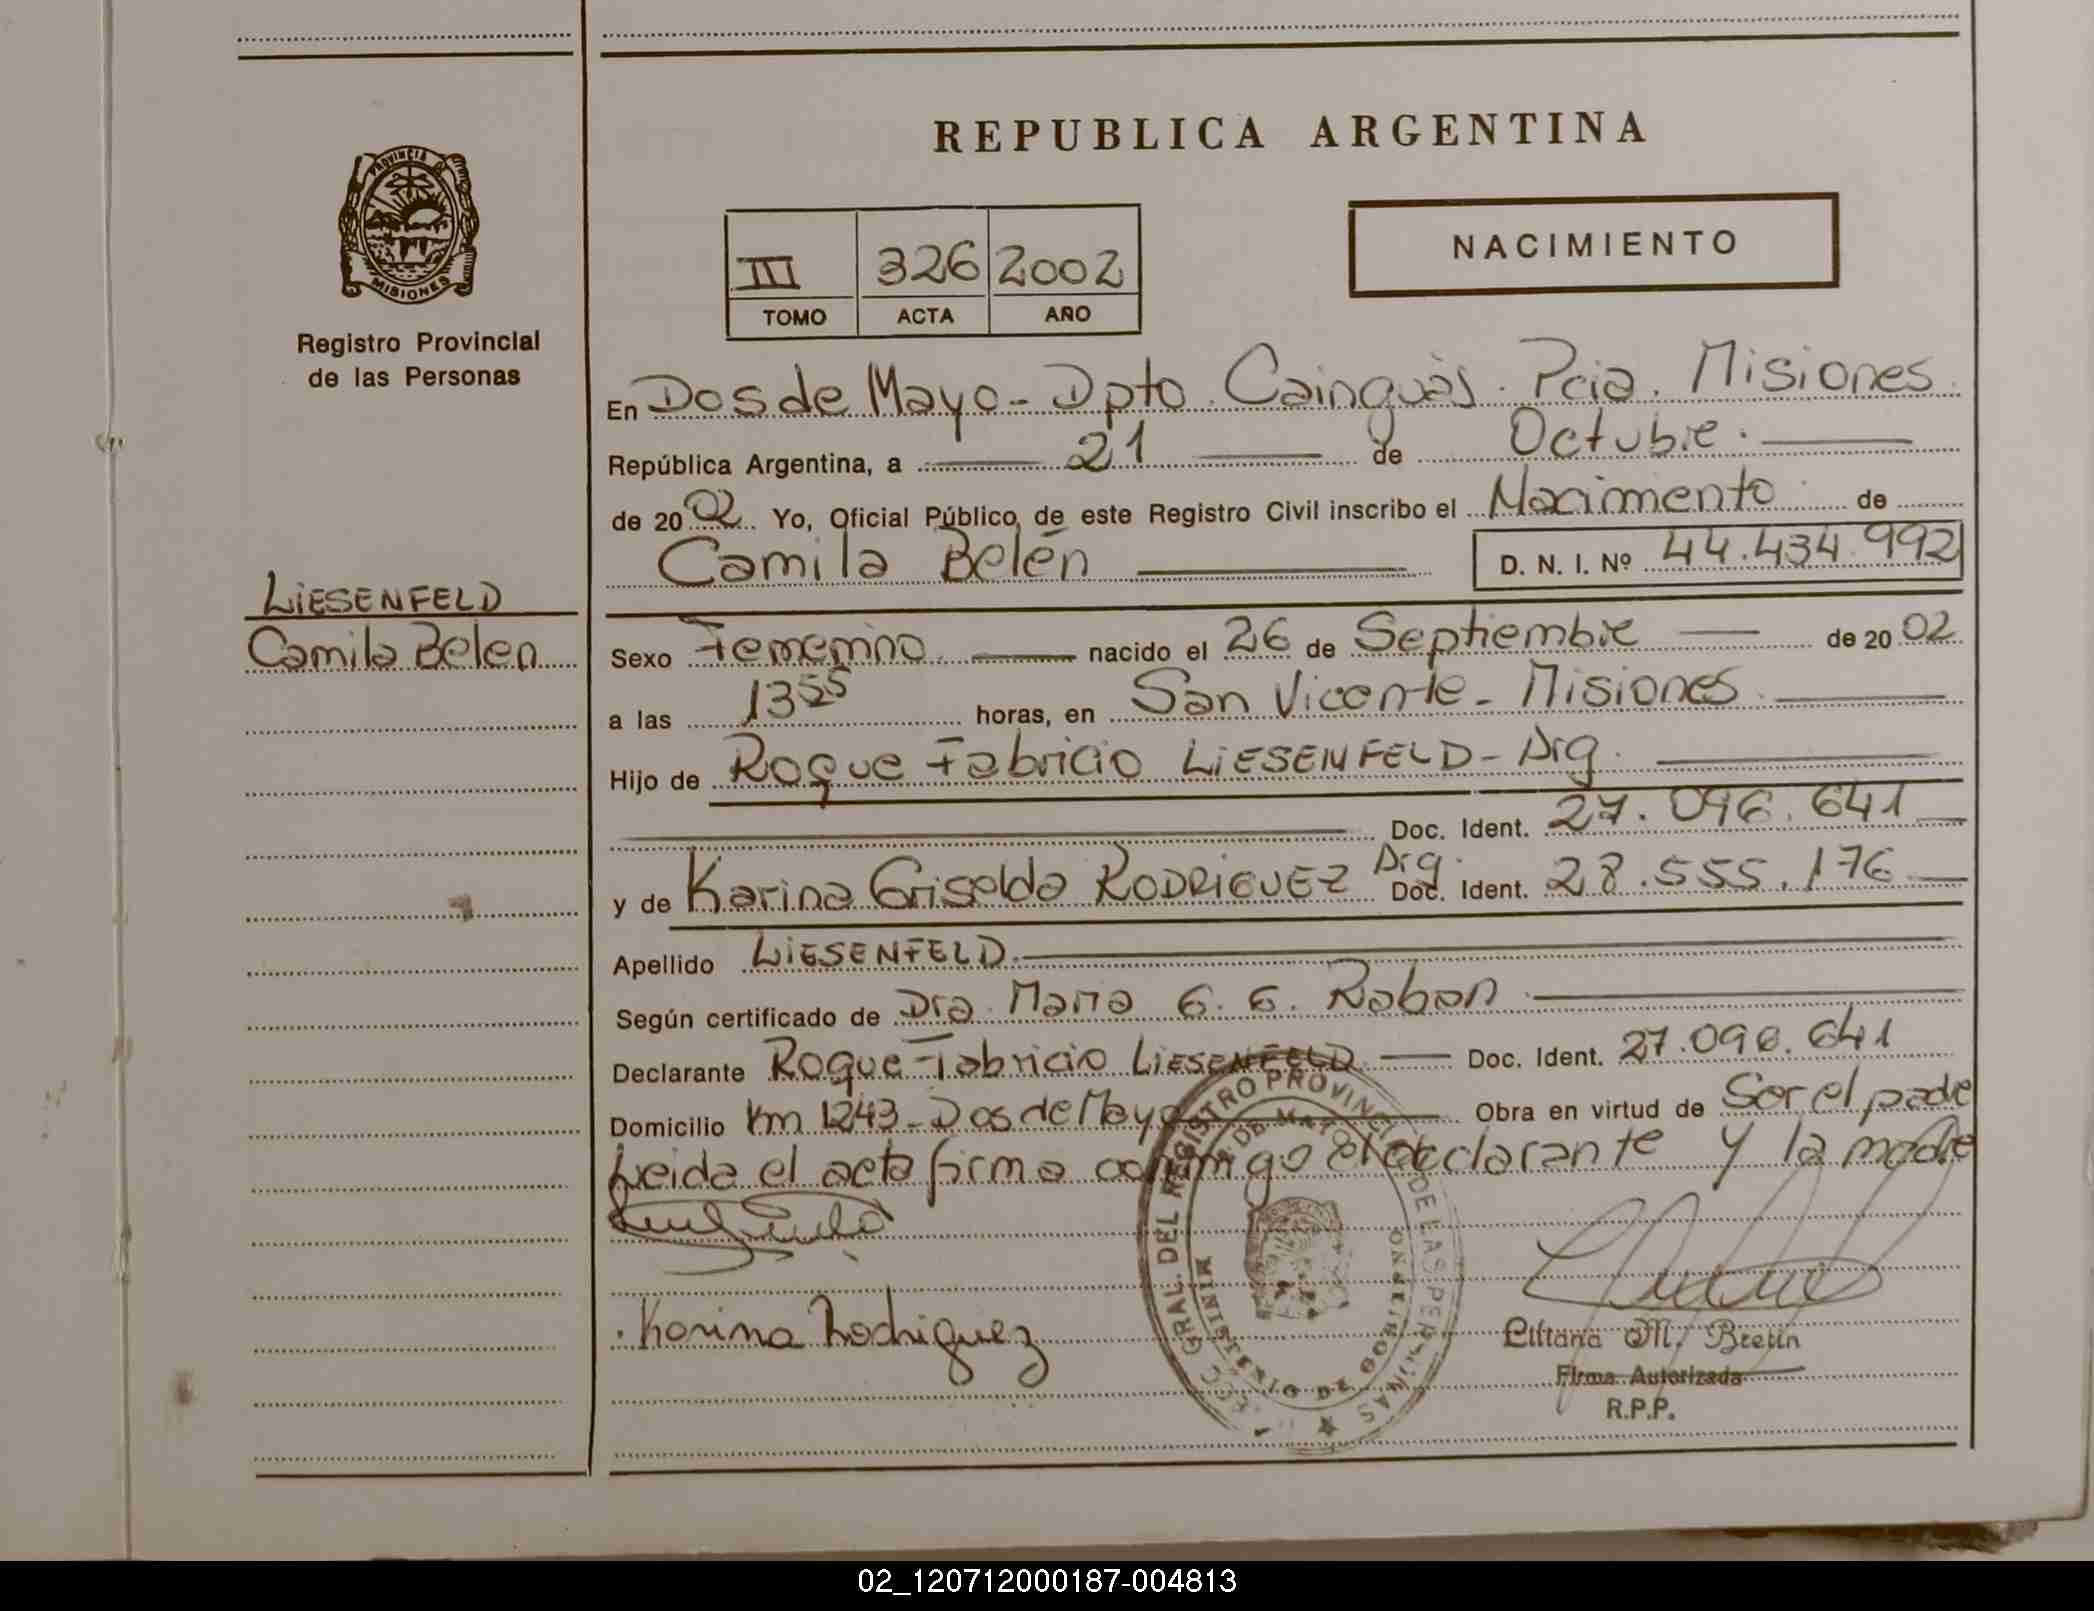 REPUBLICA ARGENTINA
PROVINCIA DE MISIONES
Registro Provincial
de las Personas
NACIMIENTO
III 326 2002
TOMO ACTA AÑO
En Dos de Mayo - Dpto Cainguàs. Pcia. Misiones.
República Argentina, a 21 de Octubre.
de 2002 Yo, Oficial Público, de este Registro Civil inscribo el Nacimento de
Camila Belén D. N. I. Nº 44.434.992
LIESENFELD
Camila Belen
Sexo Femenino nacido el 26 de Septiembre de 2002
a las 13 55 horas, en San Vicente - Misiones.
Hijo de Roque Fabricio LIESENFELD - Arg.
Doc. Ident. 27.096.641
y de Karina Griselda RODRIGUEZ Arg. Doc. Ident. 28.555.176
Apellido LIESENFELD.
Según certificado de Dra. Maria G. G. Rabon.
Declarante Roque Fabricio LIESENFELD. Doc. Ident. 27.096.641
Domicilio Km 1243 - Dos de Mayo Obra en virtud de Ser el padre
Leida el acta firma conmigo el declarante y la madre
Karina Rodriguez
GRAL. DEL REGISTRO PROVINCIAL DE LAS PERSONAS
MINISTERIO DE GOBIERNO
Liliana M. Bretin
Firma Autorizada
R.P.P.
02_120712000187-004813